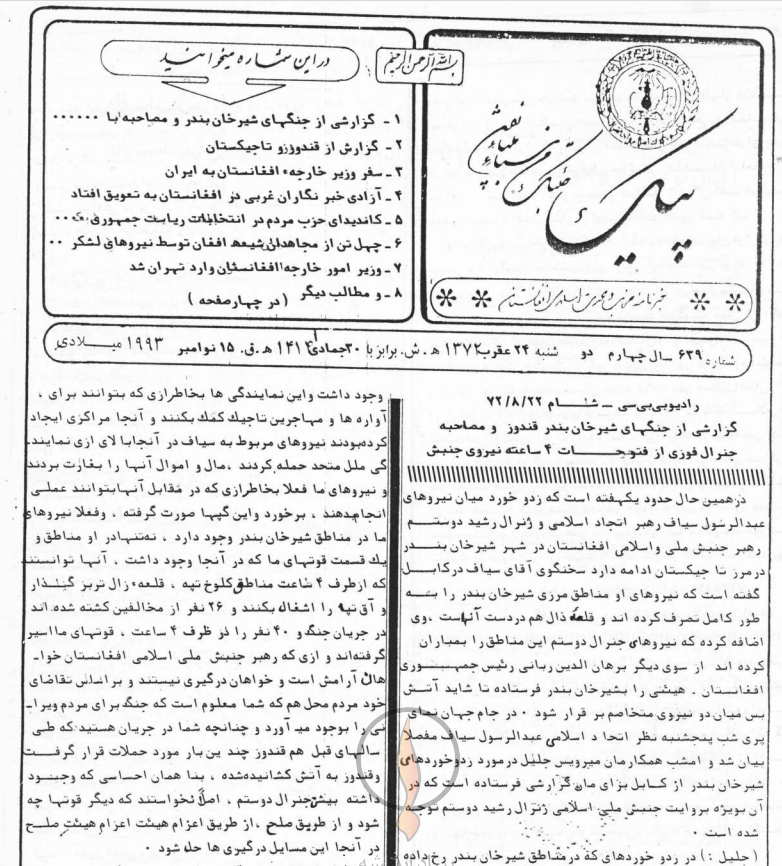 بسم الله الرحمن الرحیم
در این شماره میخوانید
۱ - گزارشی از جنگهای شیرخان بندر و مصاحبه با ۰۰۰۰۰۰
۲ - گزارش از قندوززو تاجیکستان
۳ - سفر وزیر خارجهء افغانستان به ایران
۴ - آزادی خبر نگاران غربی در افغانستان به تعویق افتاد
۵ - کاندیدای حزب مردم در انتخابات ریاست جمهوری ۰۰۰
۶ - چهل تن از مجاهدان شیعه افغان توسط نیروهای لشکر ۰۰
۷ - وزیر امور خارجه افغانستان وارد تهران شد
۸ - و مطالب دیگر ( در چهار صفحه )
خبرنامه حزبی و جنبش ملی اسلامی افغانستان
شماره ۶۳۹ سال چهارم دو شنبه ۲۴ عقرب ۱۳۷۲ هـ . ش. برابر با ۳۰ جمادی ۱ ۱۴۱۴ هـ . ق. ۱۵ نوامبر ۱۹۹۳ میلادی
رادیوبی‌بی‌سی - شام ۷۲/۸/۲۲
گزارشی از جنگهای شیرخان بندر قندوز و مصاحبه
جنرال فوزی از فتوحات ۴ ساعته نیروی جنبش
درهمین حال حدود یکهفته است که زدو خورد میان نیروهای
عبدالرسول سیاف رهبر اتحاد اسلامی و ژنرال رشید دوستم
رهبر جنبش ملی واسلامی افغانستان در شهر شیرخان بندر
درمرز تا جیکستان ادامه دارد سخنگوی آقای سیاف درکابل
گفته است که نیروهای او مناطق مرزی شیرخان بندر را به
طور کامل تصرف کرده اند و قلعه ذال هم دردست آنهاست ،وی
اضافه کرده که نیروهای جنرال دوستم این مناطق را بمباران
کرده اند از سوی دیگر برهان الدین ربانی رئیس جمهوری
افغانستان . هیئتی را بشیرخان بندر فرستاده تا شاید آتش
بس میان دو نیروی متخاصم بر قرار شود ۰ در جام جهان نمای
پری شب پنجشنبه نظر اتحا د اسلامی عبدالرسول سیاف مفصلا
بیان شد و امشب همکارمان میرویس جلیل درمورد زدوخوردهای
شیرخان بندر از کابل برای مان گزارشی فرستاده است که در
آن بویژه بروایت جنبش ملی اسلامی ژنرال رشید دوستم توجه
شده است ۰
( جلیل : ) در زدو خوردهای که در مناطق شیرخان بندر رخ داده
وجود داشت واین نمایندگی ها بخاطرازی که بتوانند برای ،
آواره ها و مهاجرین تاجیك کمك بکنند و آنجا مراکزی ایجاد
کرده‌بودند نیروهای مربوط به سیاف در آنجابا لای ازی نمایند
گی ملل متحد حمله کردند ،مال و اموال آنها را بغارت بردند
و نیروهای ما فعلا بخاطرازی که در مقابل آنهابتوانند عملی
انجام‌بدهند ، برخورد واین گپها صورت گرفته ، وفعلا نیروهای
ما در مناطق شیرخان بندر وجود دارد ، نه‌تنهادر او مناطق و
یك قسمت قوتهای ما که در آنجا وجود داشت ، آنها توانستند
که ازطرف ۴ ساعت مناطق کلوخ تپه ، قلعهء زال تربز گذار
و آق تپه را اشغال بکنند و ۲۶ نفر از مخالفین کشته شده اند
در جریان جنگ و ۴۰ نفر را در ظرف ۴ ساعت ، قوتهای مااسیر
گرفته‌اند و ازی که رهبر جنبش ملی اسلامی افغانستان خوا-
هان آرامش است و خواهان درگیری نیستند و براساس تقاضای
خود مردم محل هم که شما معلوم است که جنگ برای مردم ویرا-
نی را بوجود میـ آورد و چنانچه شما در جریان هستید که طی
سالهای قبل هم قندوز چند ین بار مورد حملات قرار گرفت
وقندوز به آتش کشانیده‌شده ، بنا همان احساسی که وجود
داشته بیش جنرال دوستم ، اصلا نخواستند که دیگر قوتها چه
شود و از طریق ملح ،از طریق اعزام هیئت اعزام هیئت صلح
در آنجا این مسایل درگیری ها حل شود ۰